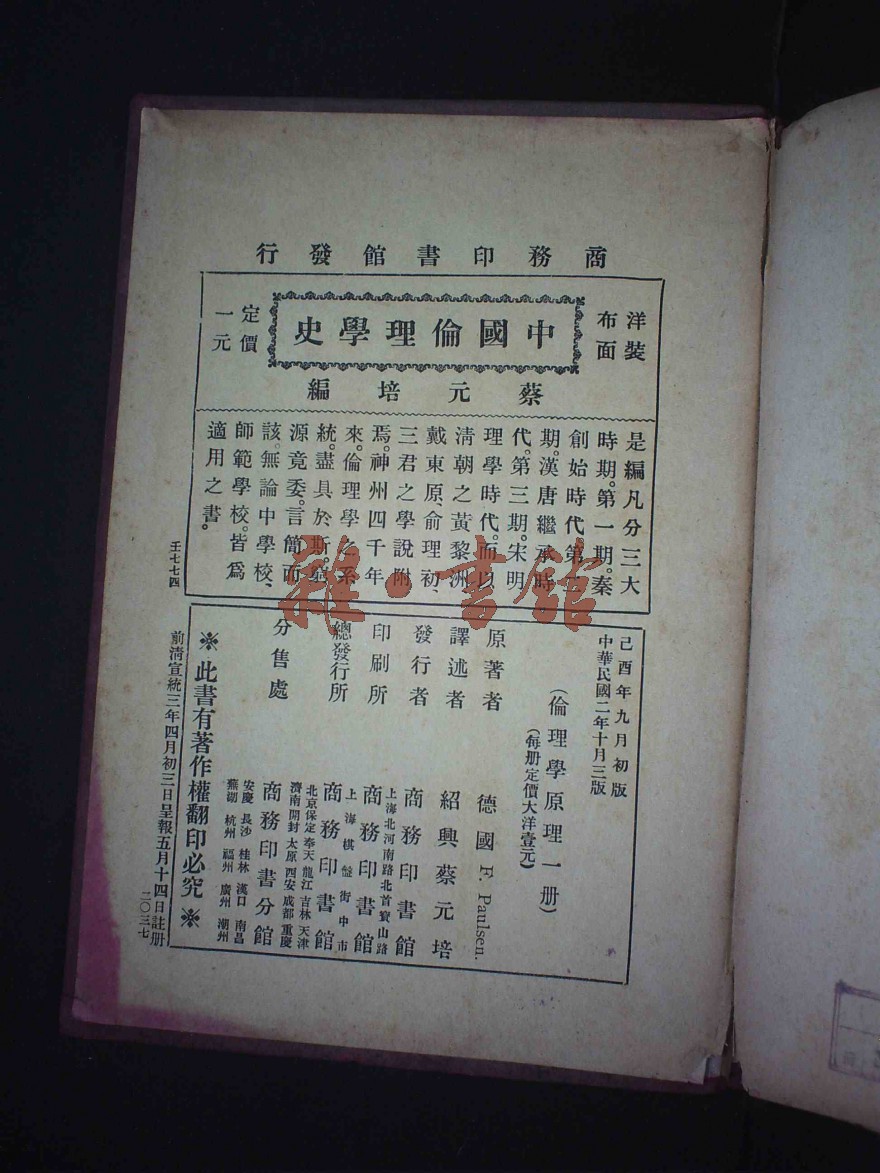 商務印書館發行
洋裝
布面
中國倫理學史
定價
一元
蔡元培編
是編凡分三大
時期。第一期。秦
創始時代。第二
期。漢唐繼承時
代。第三期。宋明
理學時代。而以
清朝之黃黎洲
戴東原、俞理初、
三君之學說附
焉。神州四千年
來。倫理學之系
統。盡具於斯。窮
源竟委。言簡而
該。無論中學校、
師範學校。皆爲
適用之書。
壬七七四
己酉年九月初版
中華民國二年十月三版
(倫理學原理一册)
(每册定價大洋壹元)
原著者 德國 F. Paulsen.
譯述者 紹興蔡元培
發行者 商務印書館
上海北河南路北首寶山路
印刷所 商務印書館
上海棋盤街中市
總發行所 商務印書館
北京保定奉天龍江吉林天津
濟南開封太原西安成都重慶
分售處 商務印書分館
安慶 長沙 桂林 漢口 南昌
蕪湖 杭州 福州 廣州 潮州
※此書有著作權翻印必究※
前清宣統三年四月初三日呈報五月十四日註册
二〇三七
雜·書館